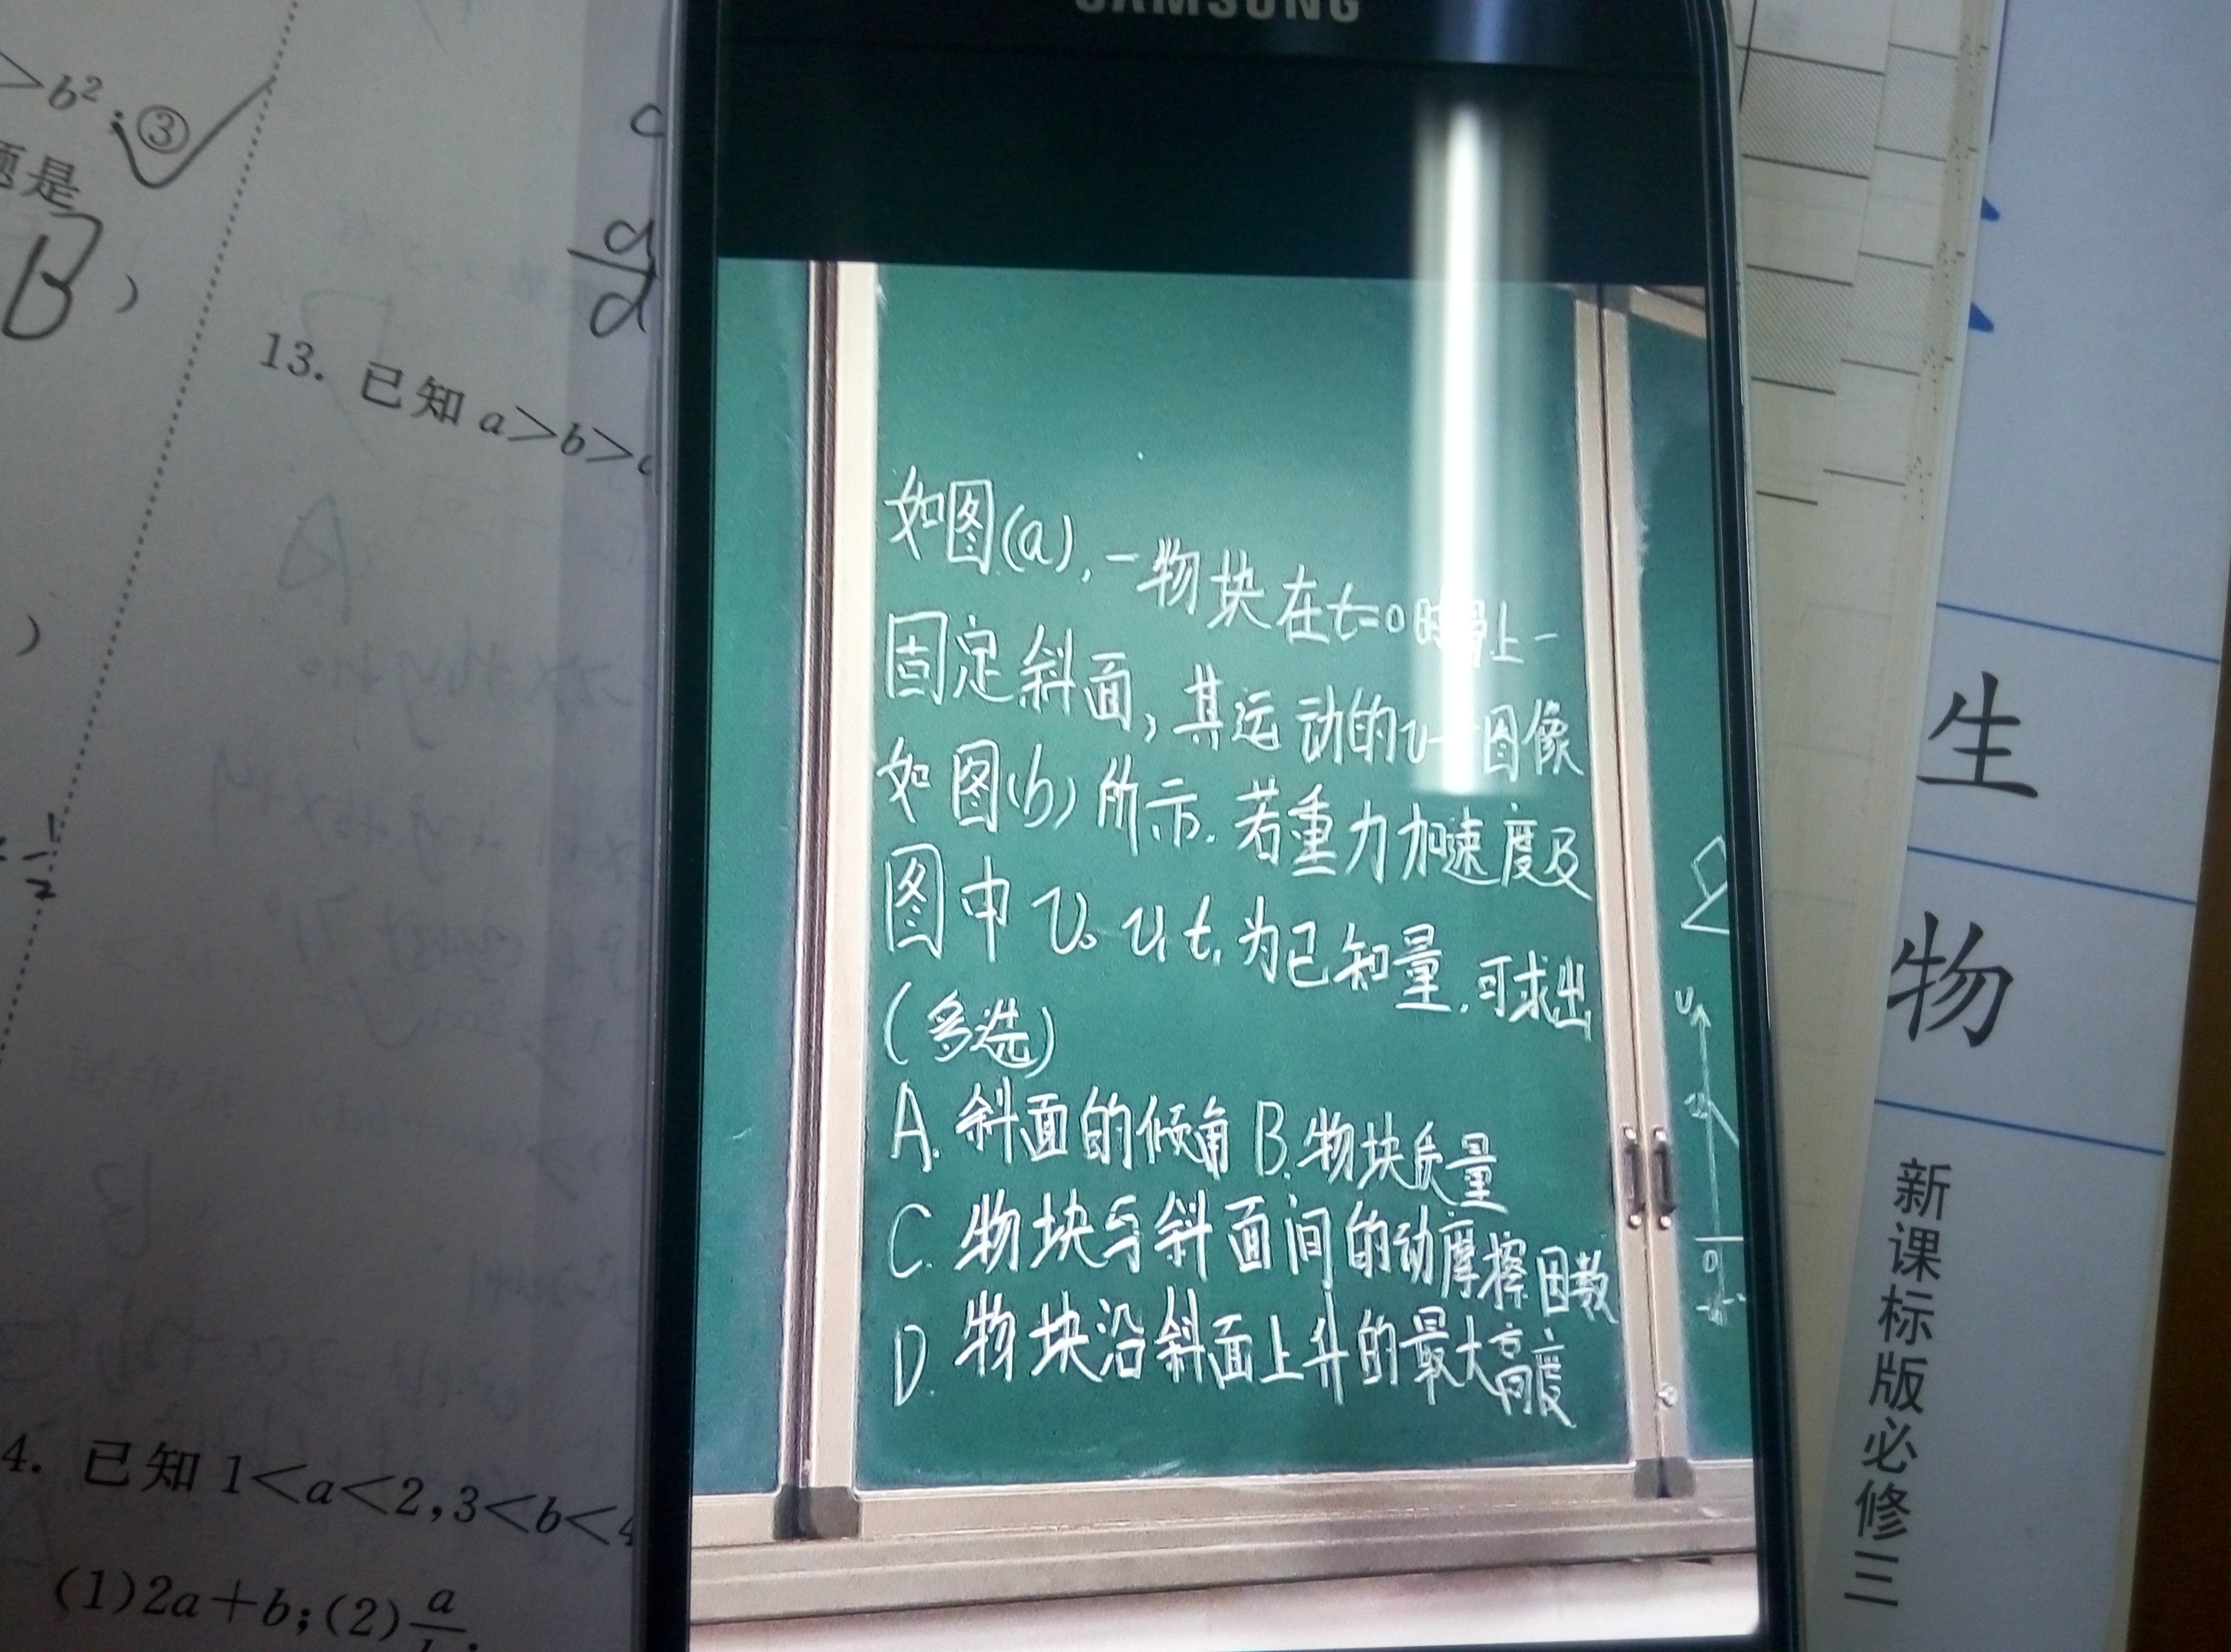 SAMSUNG
>b²;③
题是
B )
c
a
d
13. 已知a>b>
)
1
2
4. 已知1<a<2,3<b<4
(1)2a+b;(2)a
如图(a),一物块在t=0时滑上一
固定斜面,其运动的v-t图像
如图(b)所示.若重力加速度及
图中v₀ v₁ t₁为已知量,可求出
(多选)
A.斜面的倾角 B.物块质量
C.物块与斜面间的动摩擦因数
D.物块沿斜面上升的最大高度
v
v₀
0
生物
新课标版必修三